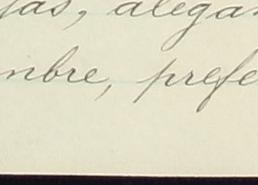 jas, alegan
nbre, prefe